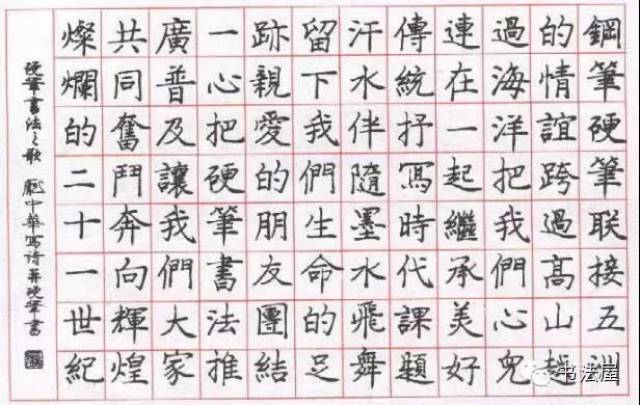 鋼筆硬筆联接五洲
的情誼跨過高山越
過海洋把我們心兒
連在一起繼承美好
傳統抒寫時代課題
汗水伴隨墨水飛舞
留下我們生命的足
跡親愛的朋友團結
一心把硬筆書法推
廣普及讓我們大家
共同奮鬥奔向輝煌
燦爛的二十一世紀
硬筆書法之歌 龐中華寫詩并硬筆書
书法屋